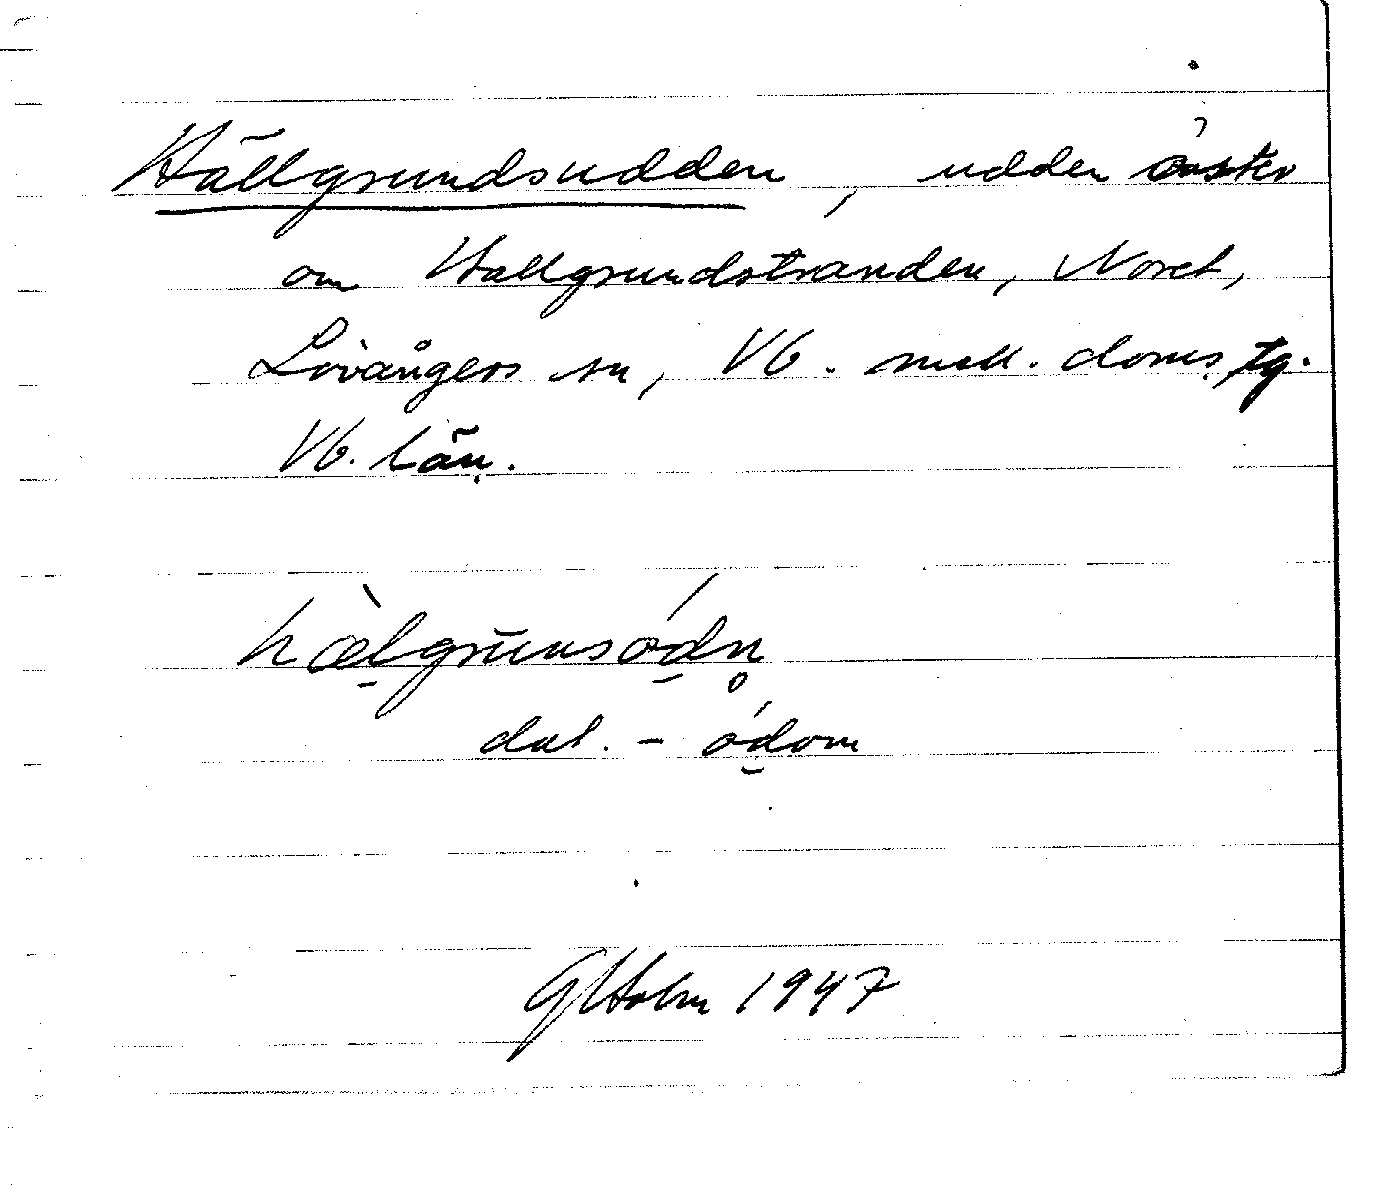 Hällgrundsudden, udden öster
om Hällgrundstranden, Noret,
Lövångers sn, Vb. mell. doms. tg.
Vb. län.
hælgrunsodn
dat. - ódom
GHolm 1947